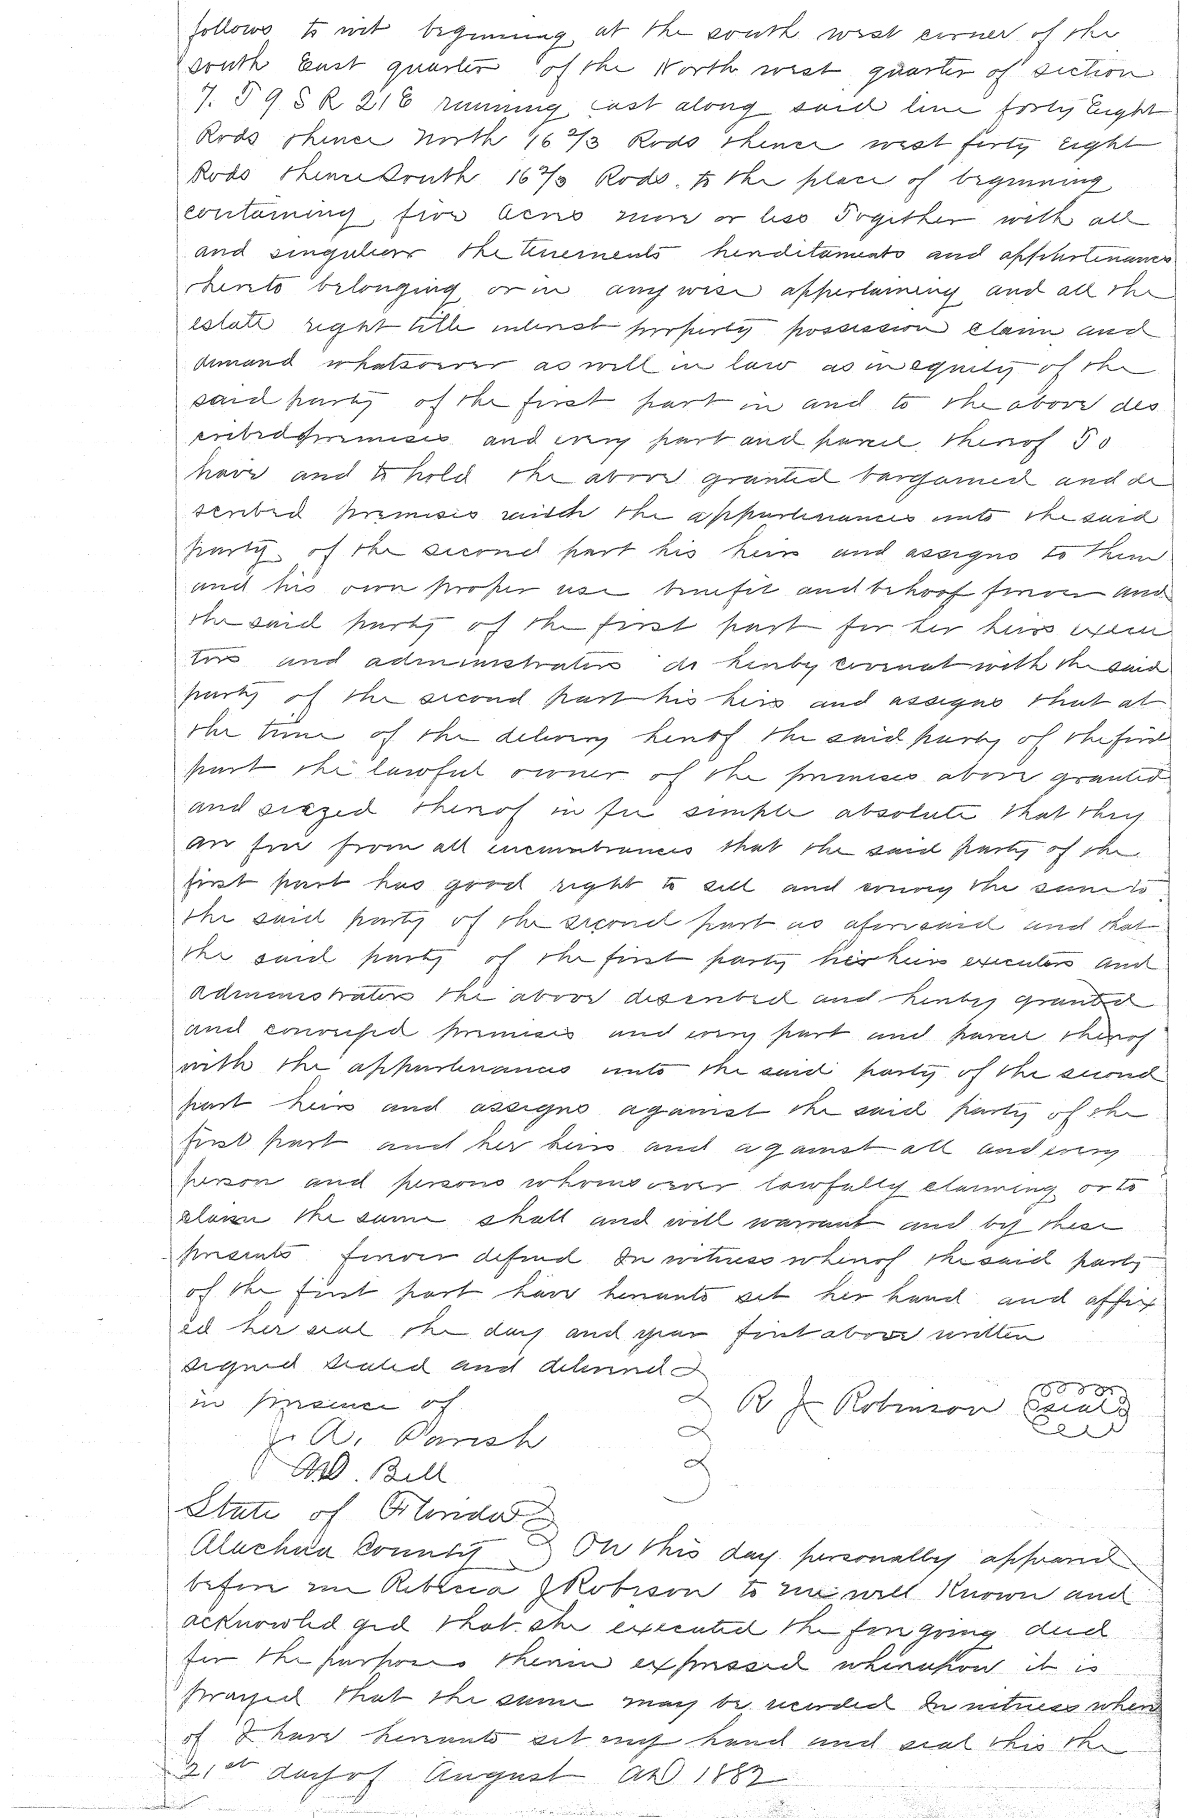 follows to wit beginning at the south west corner of the
south East quarter of the North west quarter of section
7. T 9 S R 21 E running east along said line forty Eight
Rods thence North 16 2/3 Rods thence west forty eight
Rods thence South 16 2/3 Rods to the place of beginning
containing five acres more or less Together with all
and singulier the tenements herditaments and appurtenances
thereto belonging or in any wise appertaining and all the
estate right title interest property possession claim and
demand whatsoever as well in law as in equity of the
said party of the first part in and to the above des
cribed premises and every part and parcel thereof To
have and to hold the above granted bargained and de
scribed premises with the appurtenances unto the said
party of the second part his heirs and assigns to them
and his own proper use benefit and behoof forever and
the said party of the first part for her heirs execu
tors and administrators do hereby covenat with the said
party of the second part his heirs and assigns that at
the time of the delivery hereof the said party of the first
part the lawful owner of the premises above granted
and siezed thereof in fee simple absolute that they
are free from all incumbrances that the said party of the
first part has good right to sell and convey the same to
the said party of the second part as aforesaid and that
the said party of the first party her heirs executors and
administrators the above described and hereby granted
and conveyed premises and every part and parcel thereof
with the appurtenances unto the said party of the second
part heirs and assigns against the said party of the
first part and her heirs and against all and every
person and persons whomsoever lawfully claiming or to
claim the same shall and will warrant and by these
presents forever defend In witness whereof the said party
of the first part have hereunto set her hand and affix
ed her seal the day and year first above written
signed sealed and delivered
in presence of R J Robinson Seal
J. A. Parish
Bell
State of Florida
Alachua County On this day personally appeared
before me Rebecca J Robison to me well Known and
acknowledged that she executed the foregoing deed
for the purposes therein expressed whereupon it is
prayed that the same may be recorded In witness where
of I have hereunto set my hand and seal this the
21st day of August AD 1882